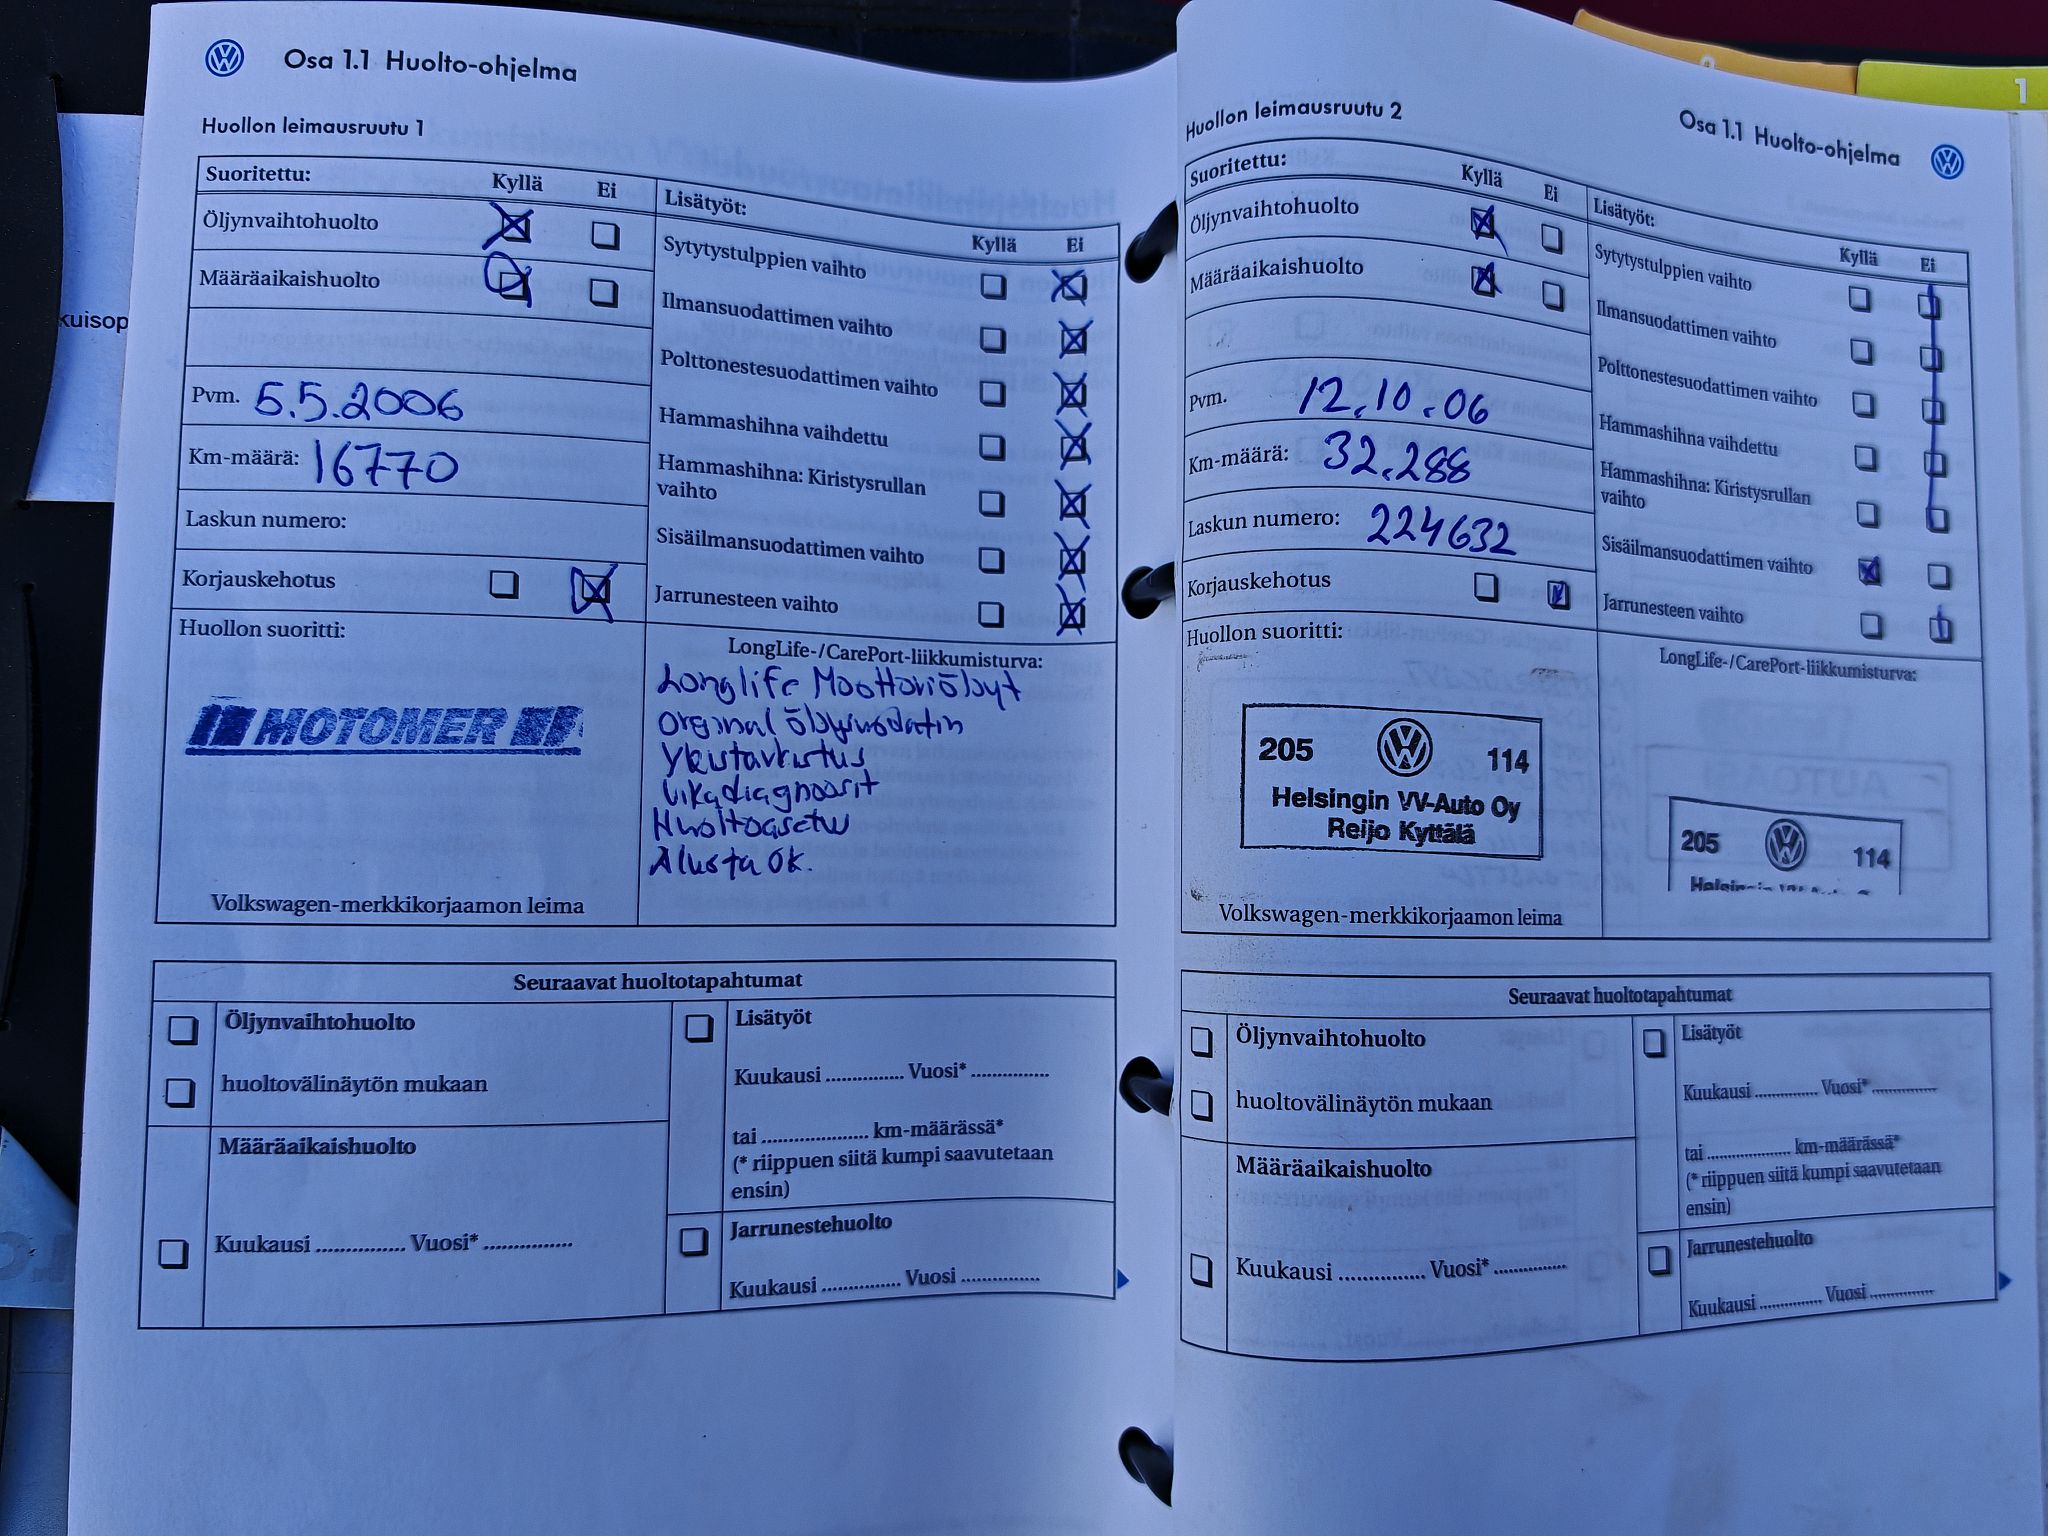 Osa 1.1 Huolto-ohjelma
Huollon leimausruutu 1
Suoritettu: Kyllä Ei
Öljynvaihtohuolto
Määräaikaishuolto
Pvm. 5.5.2006
Km-määrä: 16770
Laskun numero:
Korjauskehotus
Huollon suoritti:
MOTOMER
Volkswagen-merkkikorjaamon leima
Lisätyöt:
Kyllä Ei
Sytytystulppien vaihto
Ilmansuodattimen vaihto
Polttonestesuodattimen vaihto
Hammashihna vaihdettu
Hammashihna: Kiristysrullan
vaihto
Sisäilmansuodattimen vaihto
Jarrunesteen vaihto
LongLife-/CarePort-liikkumisturva:
Longlife Moottoriöljyt
Orginal öljynsuodatin
Yleistarkistus
Vikadiagnoosit
Huoltoasetus
Alusta ok.
Seuraavat huoltotapahtumat
Öljynvaihtohuolto
huoltovälinäytön mukaan
Määräaikaishuolto
Kuukausi ............... Vuosi* ...............
Lisätyöt
Kuukausi ............... Vuosi* ...............
tai .................... km-määrässä*
(* riippuen siitä kumpi saavutetaan
ensin)
Jarrunestehuolto
Kuukausi ............... Vuosi ...............
kuisop
Huollon leimausruutu 2
Osa 1.1 Huolto-ohjelma
Suoritettu: Kyllä Ei
Öljynvaihtohuolto
Määräaikaishuolto
Pvm. 12.10.06
Km-määrä: 32.288
Laskun numero: 224632
Korjauskehotus
Huollon suoritti:
205 114
Helsingin VV-Auto Oy
Reijo Kyttälä
Volkswagen-merkkikorjaamon leima
Lisätyöt:
Kyllä Ei
Sytytystulppien vaihto
Ilmansuodattimen vaihto
Polttonestesuodattimen vaihto
Hammashihna vaihdettu
Hammashihna: Kiristysrullan
vaihto
Sisäilmansuodattimen vaihto
Jarrunesteen vaihto
LongLife-/CarePort-liikkumisturva:
205 114
Seuraavat huoltotapahtumat
Öljynvaihtohuolto
huoltovälinäytön mukaan
Määräaikaishuolto
Kuukausi ............... Vuosi* ...............
Lisätyöt
Kuukausi ............... Vuosi* ...............
tai .................... km-määrässä*
(* riippuen siitä kumpi saavutetaan
ensin)
Jarrunestehuolto
Kuukausi ............... Vuosi ...............
1